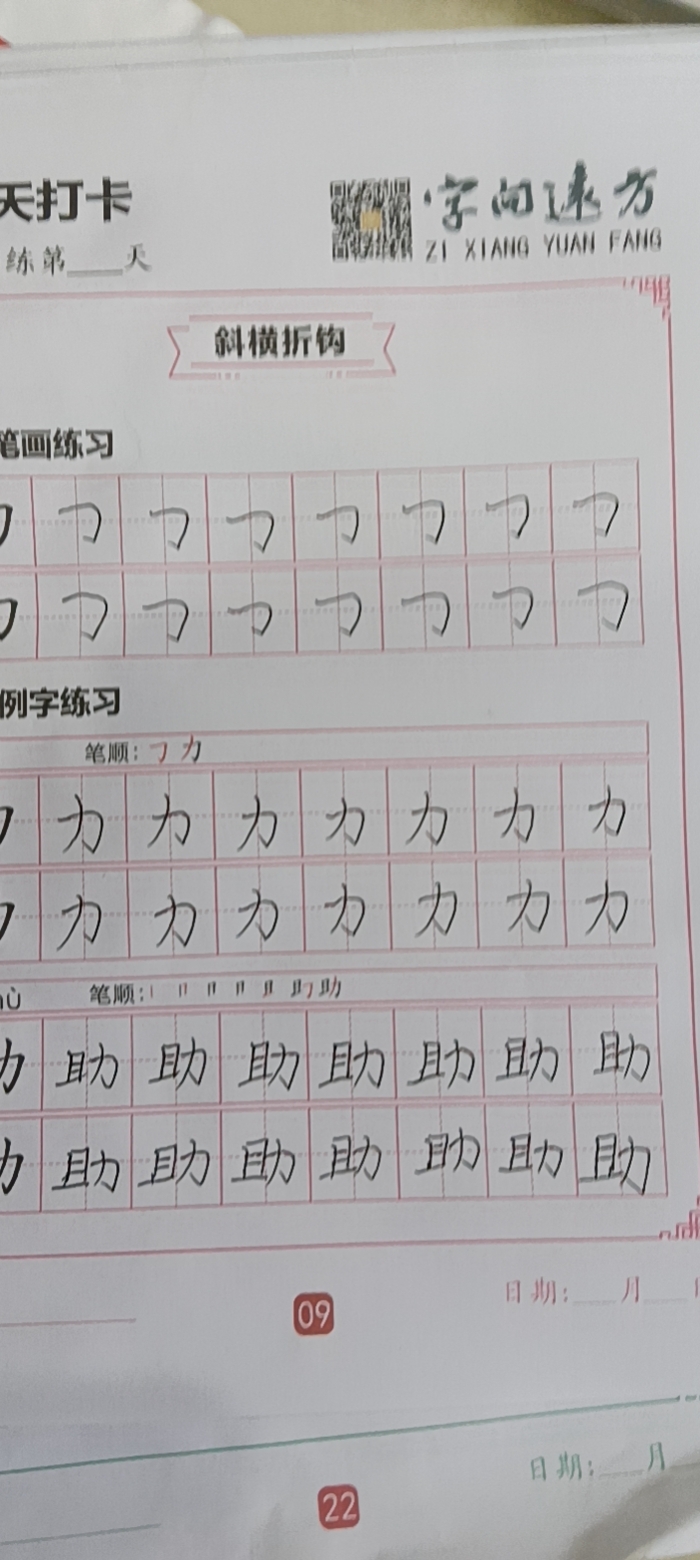 天打卡
字间速方
ZI XIANG YUAN FANG
练第____天
斜横折钩
笔画练习
㇆ ㇆ ㇆ ㇆ ㇆ ㇆ ㇆ ㇆
㇆ ㇆ ㇆ ㇆ ㇆ ㇆ ㇆ ㇆
例字练习
笔顺: ㇆ 力
力 力 力 力 力 力 力
力 力 力 力 力 力 力
笔顺: 助
助 助 助 助 助 助 助
助 助 助 助 助 助 助
09
日期:____月____
日期:____月
22